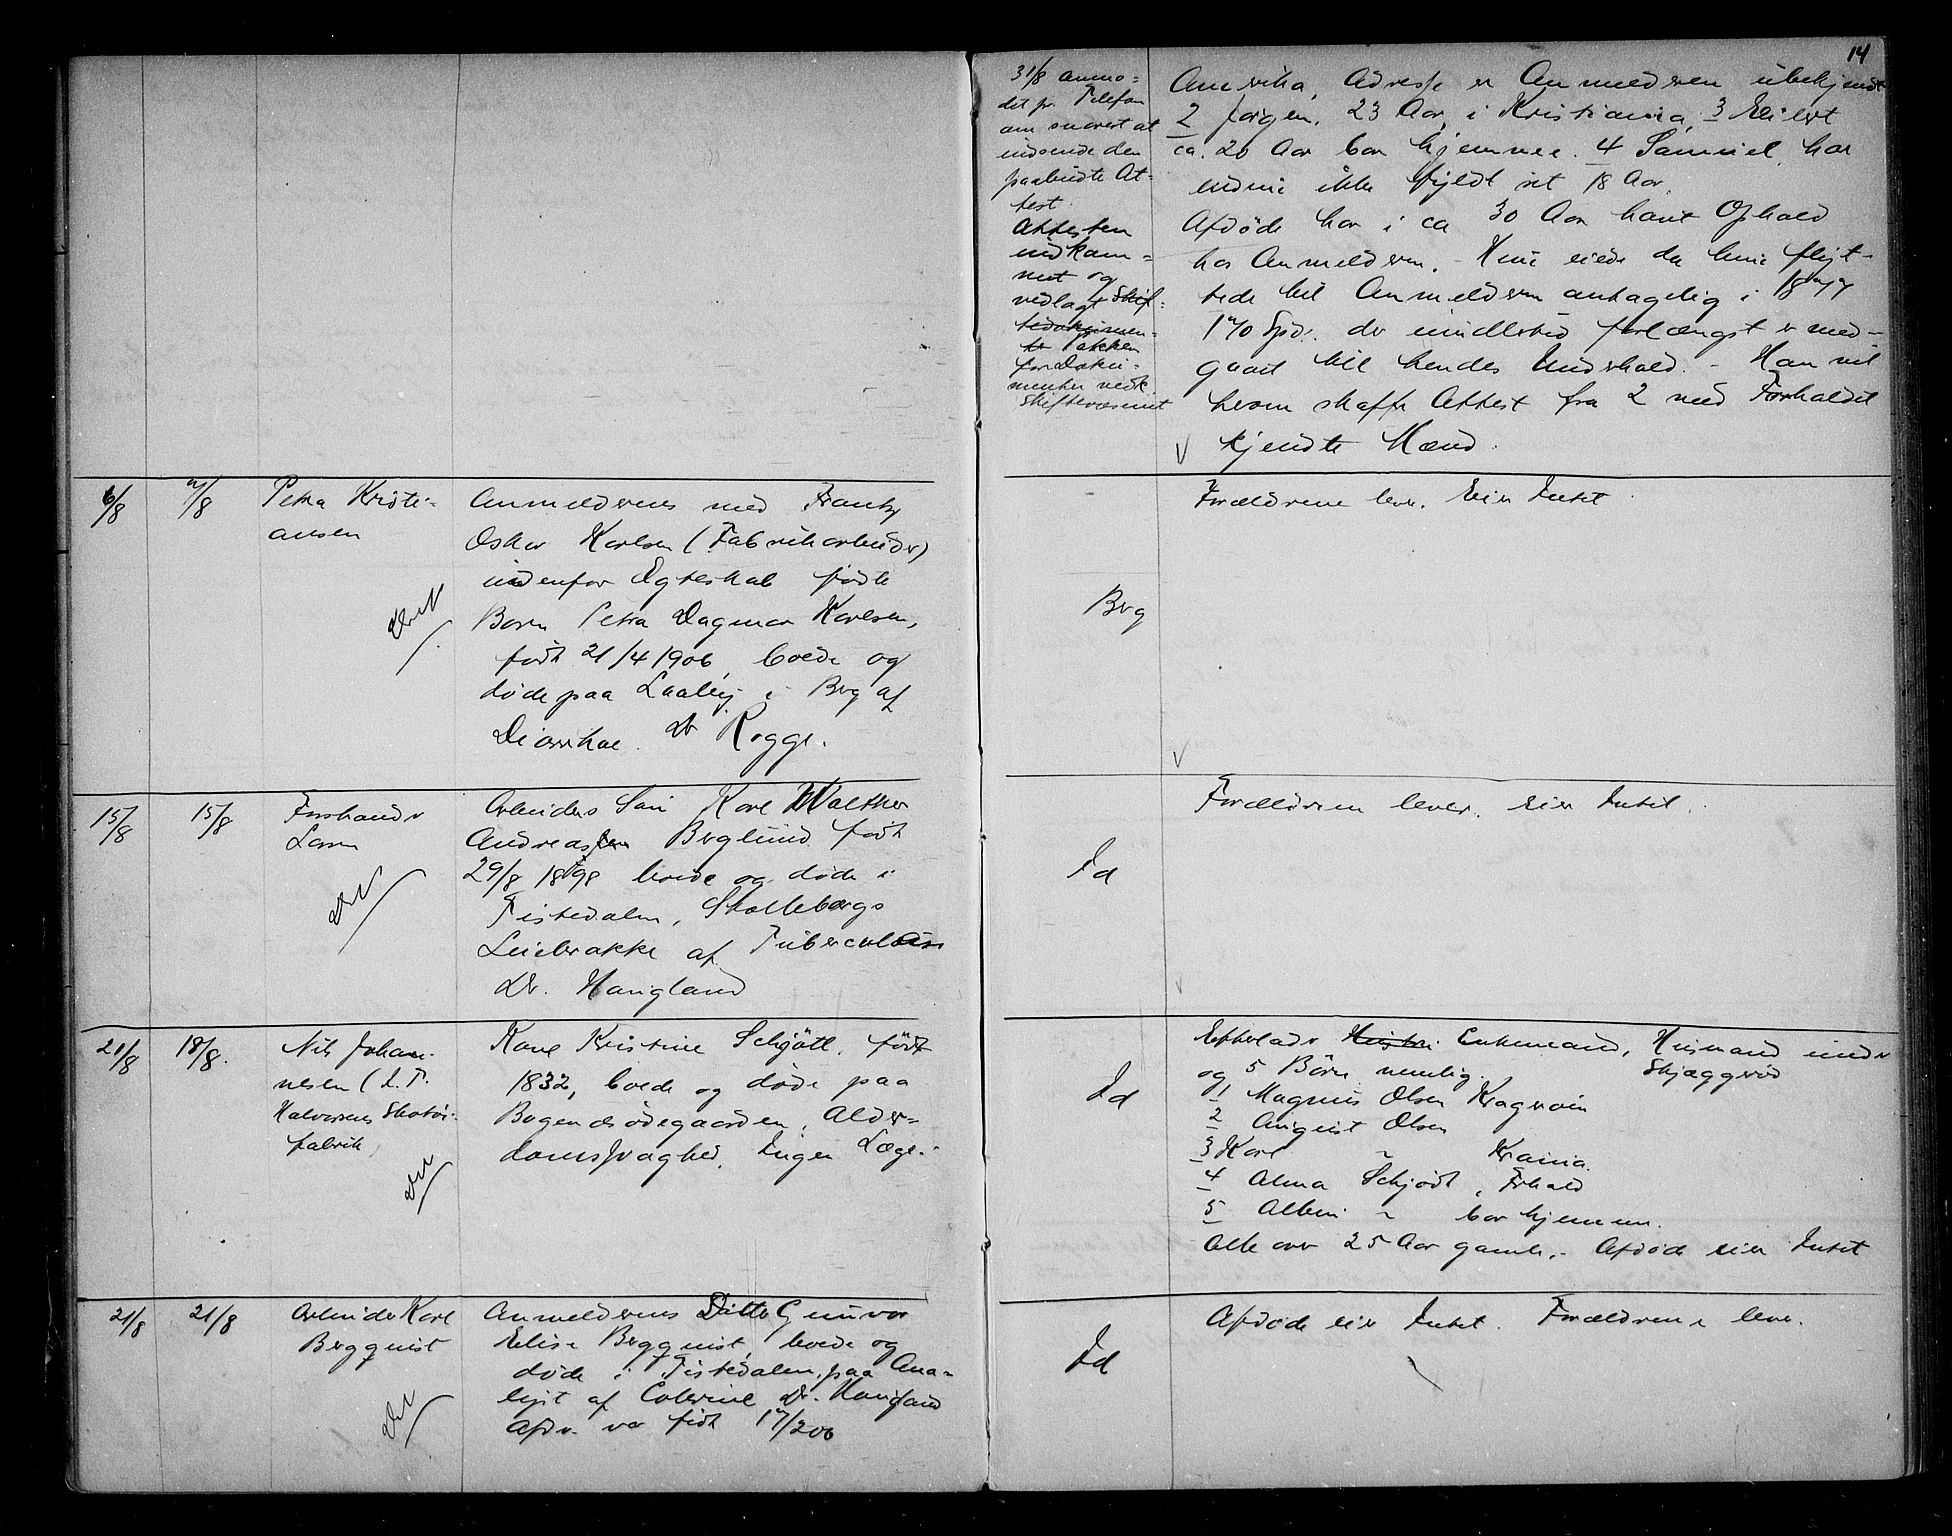 14
31/8 anmo=
det pr. Telefon
om snarest at
indsende den
paabudte At-
test.
Attesten
indkom=
met og
vedlagt Skif=
tedokumen-
ter Pakken
for Doku-
menter vedk.
Skiftevæsenet
Amerika, Adresse er Anmelderen ubekjendt
2 Jørgen, 23 Aar, i Kristiania, 3 Eilert
ca. 20 Aar bor hjemme. 4 Samuel, har
endnu ikke fyldt sit 18 Aar.
Afdøde har i ca 30 Aar havt Ophold
hos Anmelderen. - Hun eiede da hun flyt-
tede til Anmelderen antagelig i 1877
170 Spd. der imidlertid forlængst er med-
gaaet til hendes Underhold. - Han vil
herom skaffe Attest fra 2 med Forholdet
kjendte Mænd.
6/8 7/8 Petra Kristi-
ansen
Anmelderens med Frants
Oskar Karlsen (Fabrikarbeider)
udenfor Ægteskab fødte
Barn Petra Dagmar Karlsen,
født 21/4 1906, boede og
døde paa Laaby i Berg af
Diarrhoe. Dr Rogge.
Forældrene lever. Eier Intet
Brg
15/8 15/8 Forhandler
Larsen
Arbeiders Søn Karl Walther
Andreassen Berglund født
29/8 1898 boede og døde i
Tistedalen, Stollebergs
Leiebrakke af Tuberculose
Dr. Haugland
Id
Forældrene lever. Eier Intet.
21/8 18/8. Nils Johan-
nesen (L. P.
Halvorsens Skotøi-
fabrik)
Kone Kristine Schjött, født
1832, boede og døde paa
Bøgendsødegaarden, Alder=
domssvaghed. Ingen Læge.
Id
Efterlader Hustru Enkemand, Husmand under
og 5 Børn nemlig. Skjæggerød
1 Magnus Olsen Kragerøen
2 August Olsen
3 Karl " Krania.
4 Alma Schjødt, Frhald
5 Albin " bor hjemme.
Alle over 25 Aar gamle. - Afdøde eier Intet
21/8 21/8 Arbeider Karl
Bergquist
Anmelderens Datter Gunvor
Elise Bergquist, boede og
døde i Tistedalen, paa
af Colerine Dr. Haugland
Afd. var født 17/2 06
Id
Afdøde eier Intet. Forældrene lever.